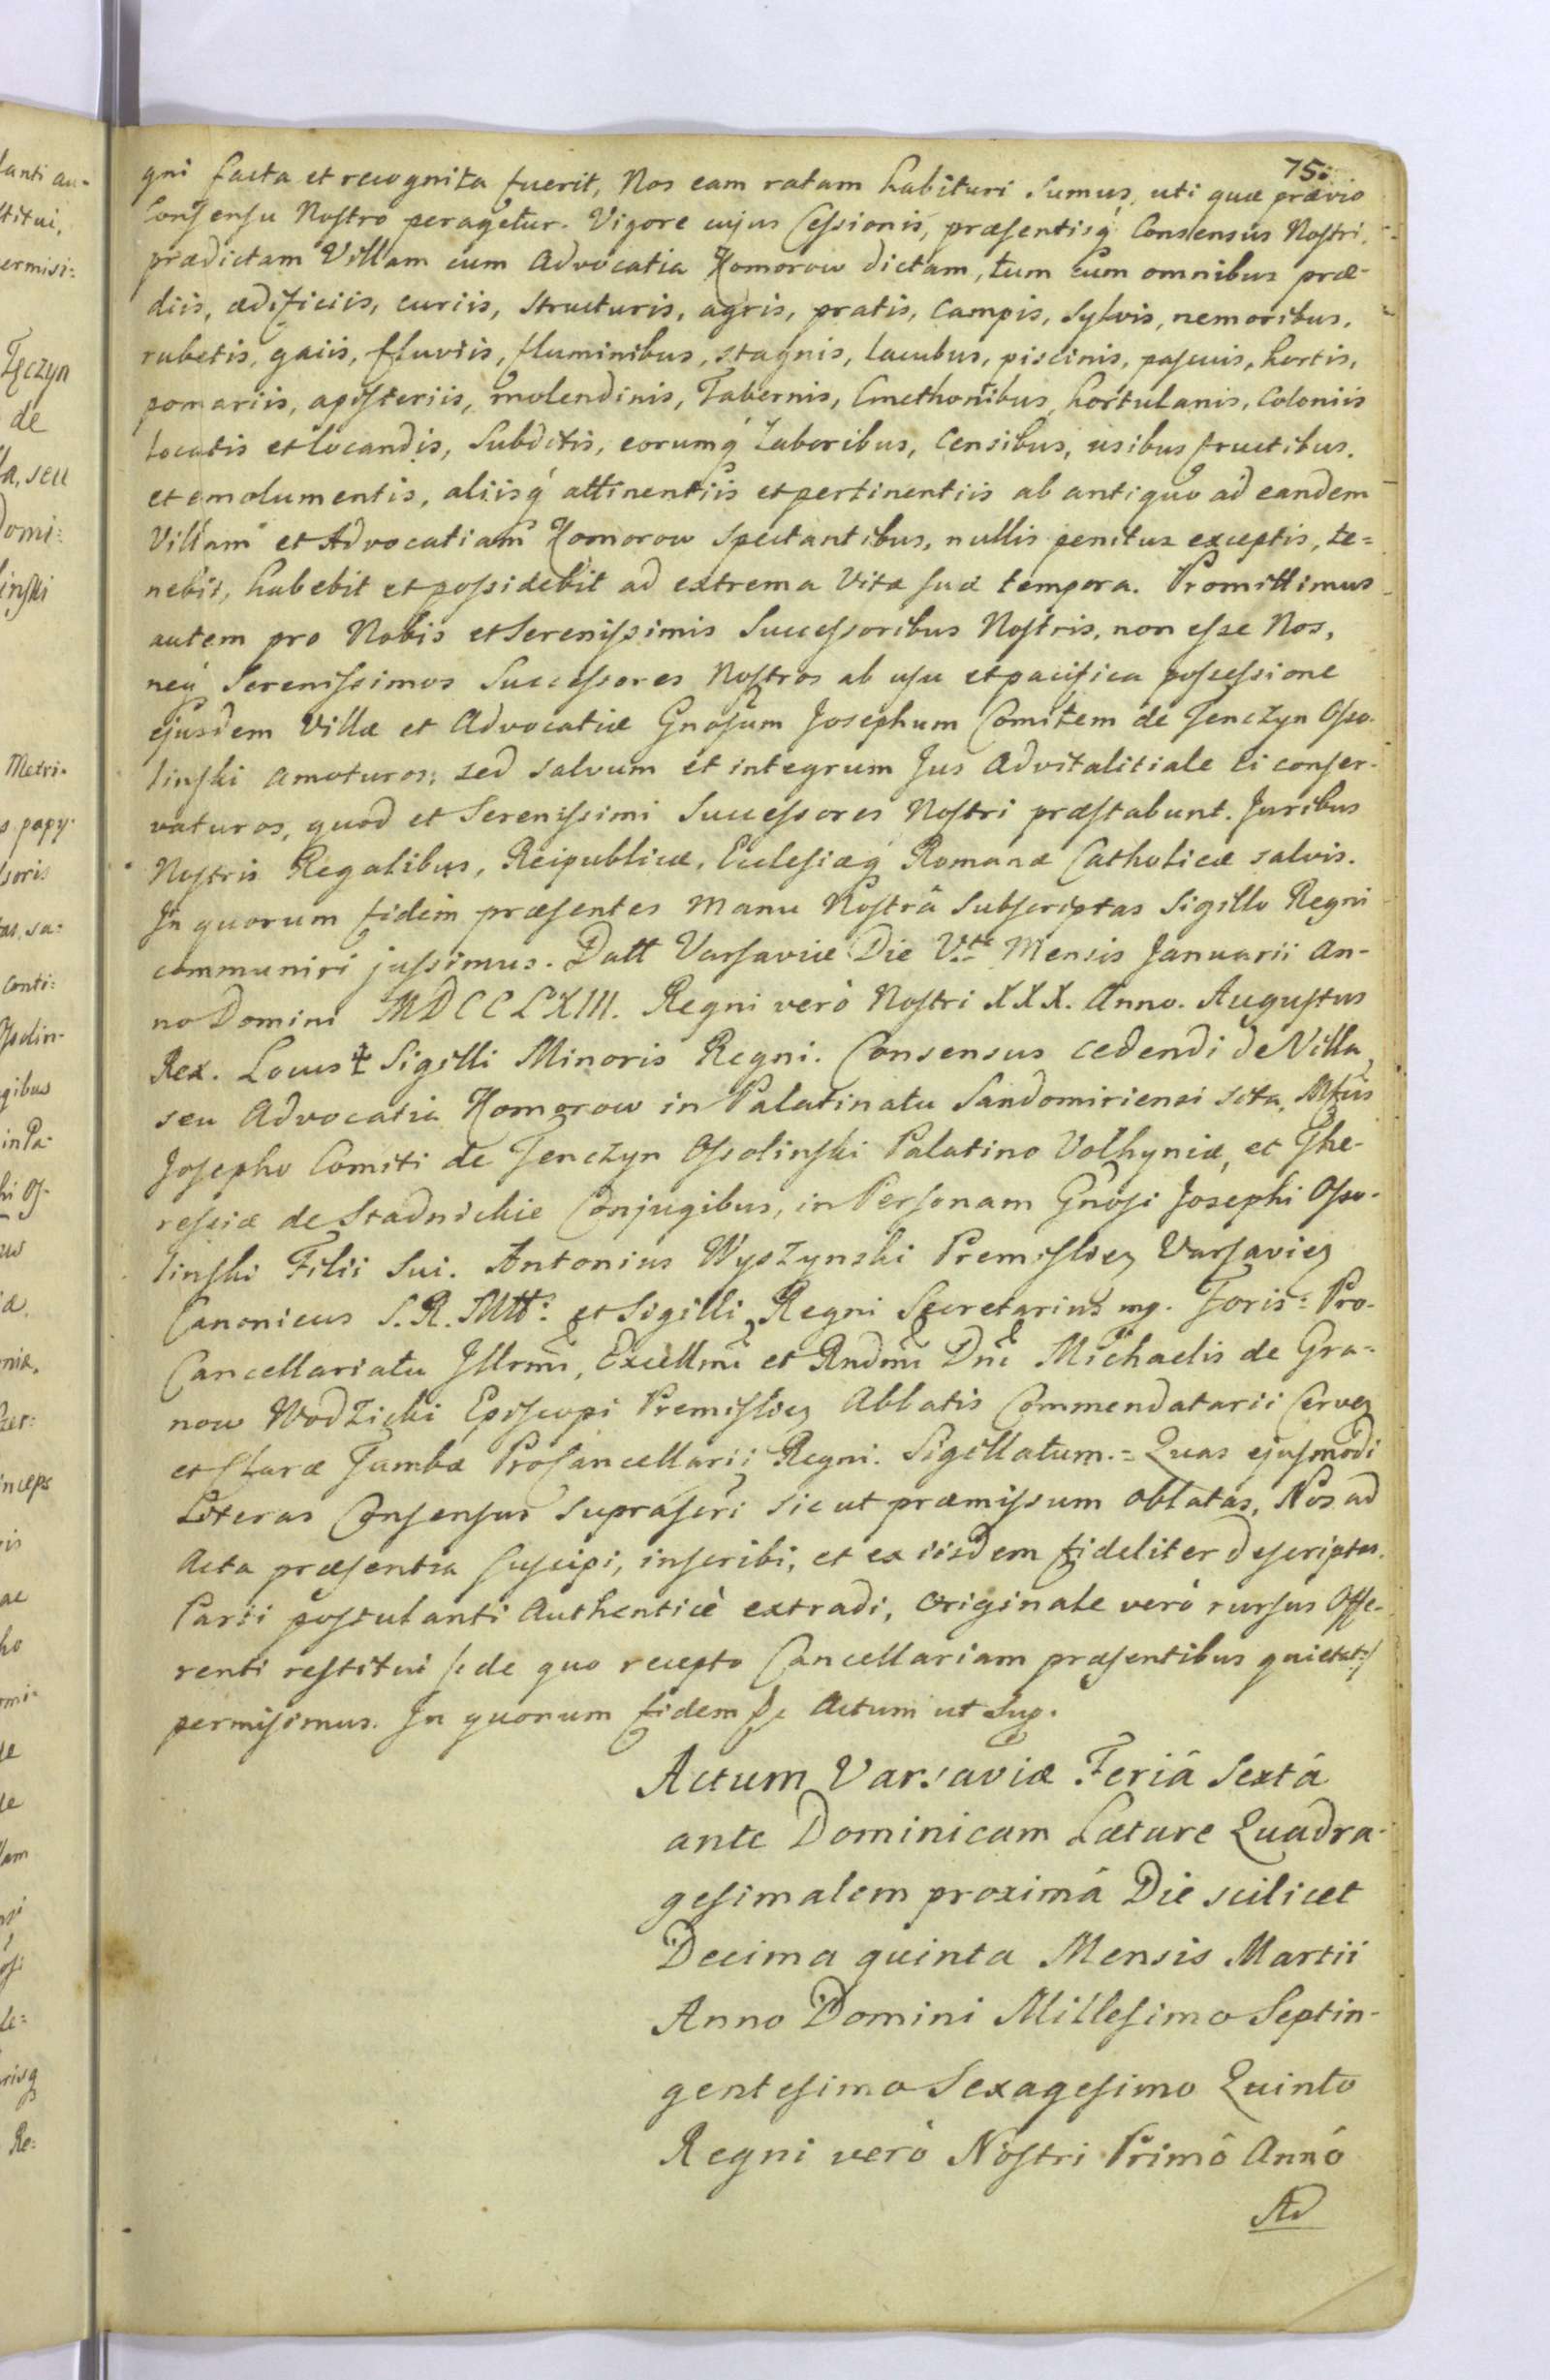 75.
gni facta et recognita fuerit, Nos eam ratam habituri sumus, uti quæ prævio
Consensu Nostro peragetur. Vigore cujus Cessionis, præsentisq́ Consensus Nostri,
prædictam Villam cum Advocatia Komorow dictam, tum cum omnibus præ-
diis, ædificiis, curiis, structuris, agris, pratis, campis, sylvis, nemoribus,
rubetis, gaiis, fluviis, fluminibus, stagnis, lacubus, piscinis, pascuis, hortis,
pomariis, apisteriis, molendinis, Tabernis, Cmethonibus, hortulanis, Coloniis
locatis et locandis, Subditis, eorumq́ Laboribus, Censibus, usibus fructibus,
et emolumentis, aliisq́ attinentiis et pertinentiis ab antiquo ad eandem
Villam et Advocatiam Komorow spectantibus, nullis penitus exceptis, te=
nebit, habebit et possidebit ad extrema Vitæ suæ tempora. Promittimus
autem pro Nobis et Serenissimis Successoribus Nostris, non esse Nos,
neq́ Serenissimos Successores Nostros ab usu et pacifica possessione
ejusdem Villæ et Advocatiæ Gnosum Josephum Comitem de Tenczyn Osso-
linski amoturos, sed salvum et integrum Jus Advitalitiale ei conser-
vaturos, quod et Serenissimi Successores Nostri præstabunt. Juribus
Nostris Regalibus, Reipublicæ, Ecclesiæq́ Romanæ Catholicæ salvis.
In quorum fidem præsentes manu Nostrâ Subscriptas Sigillo Regni
communiri jussimus. Datt Varsaviæ Die V.ta Mensis Januarii An-
no Domini MDCCLXIII. Regni verò Nostri XXX. Anno. Augustus
Rex. Locus Sigilli Minoris Regni. Consensus cedendi de Villa
seu Advocatia Komorow in Palatinatu Sandomiriensi sita, Mfcis
Josepho Comiti de Tenczyn Ossolinski Palatino Volhyniæ, et The-
ressiæ de Stadnickie Conjugibus, in Personam Gnosi Josephi Osso-
linski Filii Sui. Antonius Wyszynski Premislien Varsavien
Canonicus S. R. Mtt: et Sigilli Regni Secretarius mp. Foris: Pro-
Cancellariatu Illrmi, Excellmi et Rndmi Dni Michaelis de Gra=
now Wodzicki Episcopi Premislien Abbatis Commendatarii Cerven
et Claræ Tumbæ ProCancellarii Regni. Sigillatum.= Quas ejusmodi
Literas Consensus suprascri sic ut præmissum oblatas, Nos ad
Acta præsentia suscipi, inscribi, et ex iisdem fideliter descriptas
Parti postulanti Authenticè extradi, originale verò rursus Offe-
renti restitui de quo recepto Cancellariam præsentibus quietat
permisimus. In quorum fidem Actum ut Sup.
Actum Varsaviæ Feriâ Sextâ
ante Dominicam Lætare Quadra-
gesimalem proximâ Die scilicet
Decima quinta Mensis Martii
Anno Domini Millesimo Septin-
gentesimo Sexagesimo Quinto
Regni verò Nostri Primô Annô
Ad